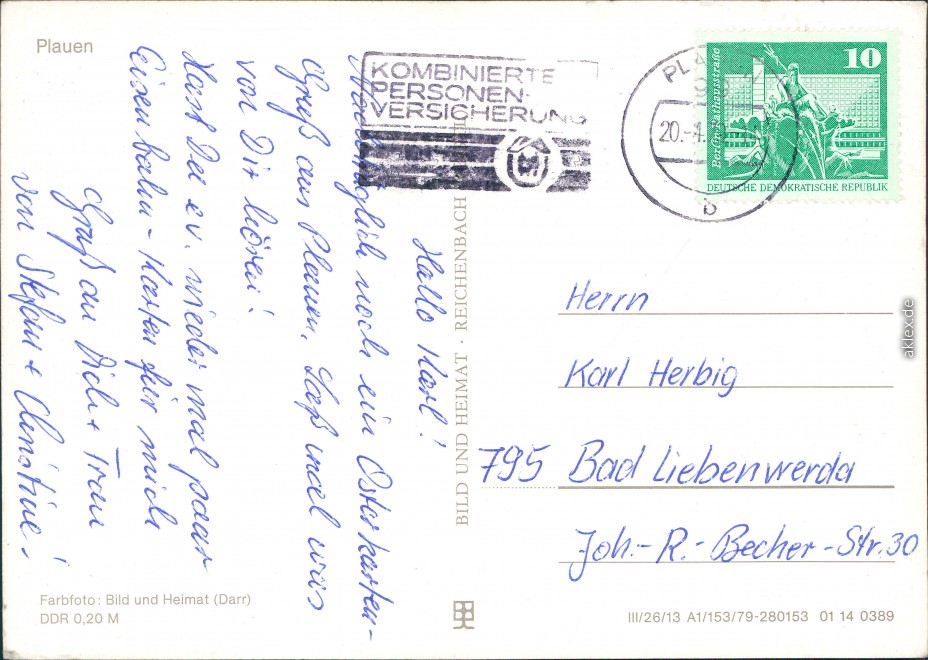 Plauen
KOMBINIERTE
PERSONEN-
VERSICHERUNG
PLA
20.-4.
b
10
Berlin, Rathausstraße
DEUTSCHE DEMOKRATISCHE REPUBLIK
Hallo Karl!
Nachträglich noch ein Osterkarten-
Gruß aus Plauen. Laß mal was
von Dir hören!
Hast Du ev. wieder mal paar
Eisenbahn-Karten für mich
Gruß an Dich + Frau
von Stefan + Christine!
BILD UND HEIMAT · REICHENBACH
Herrn
Karl Herbig
795 Bad Liebenwerda
Joh.-R.-Becher-Str. 30
Farbfoto: Bild und Heimat (Darr)
DDR 0,20 M
III/26/13 A1/153/79-280153 01 14 0389
aklex.de